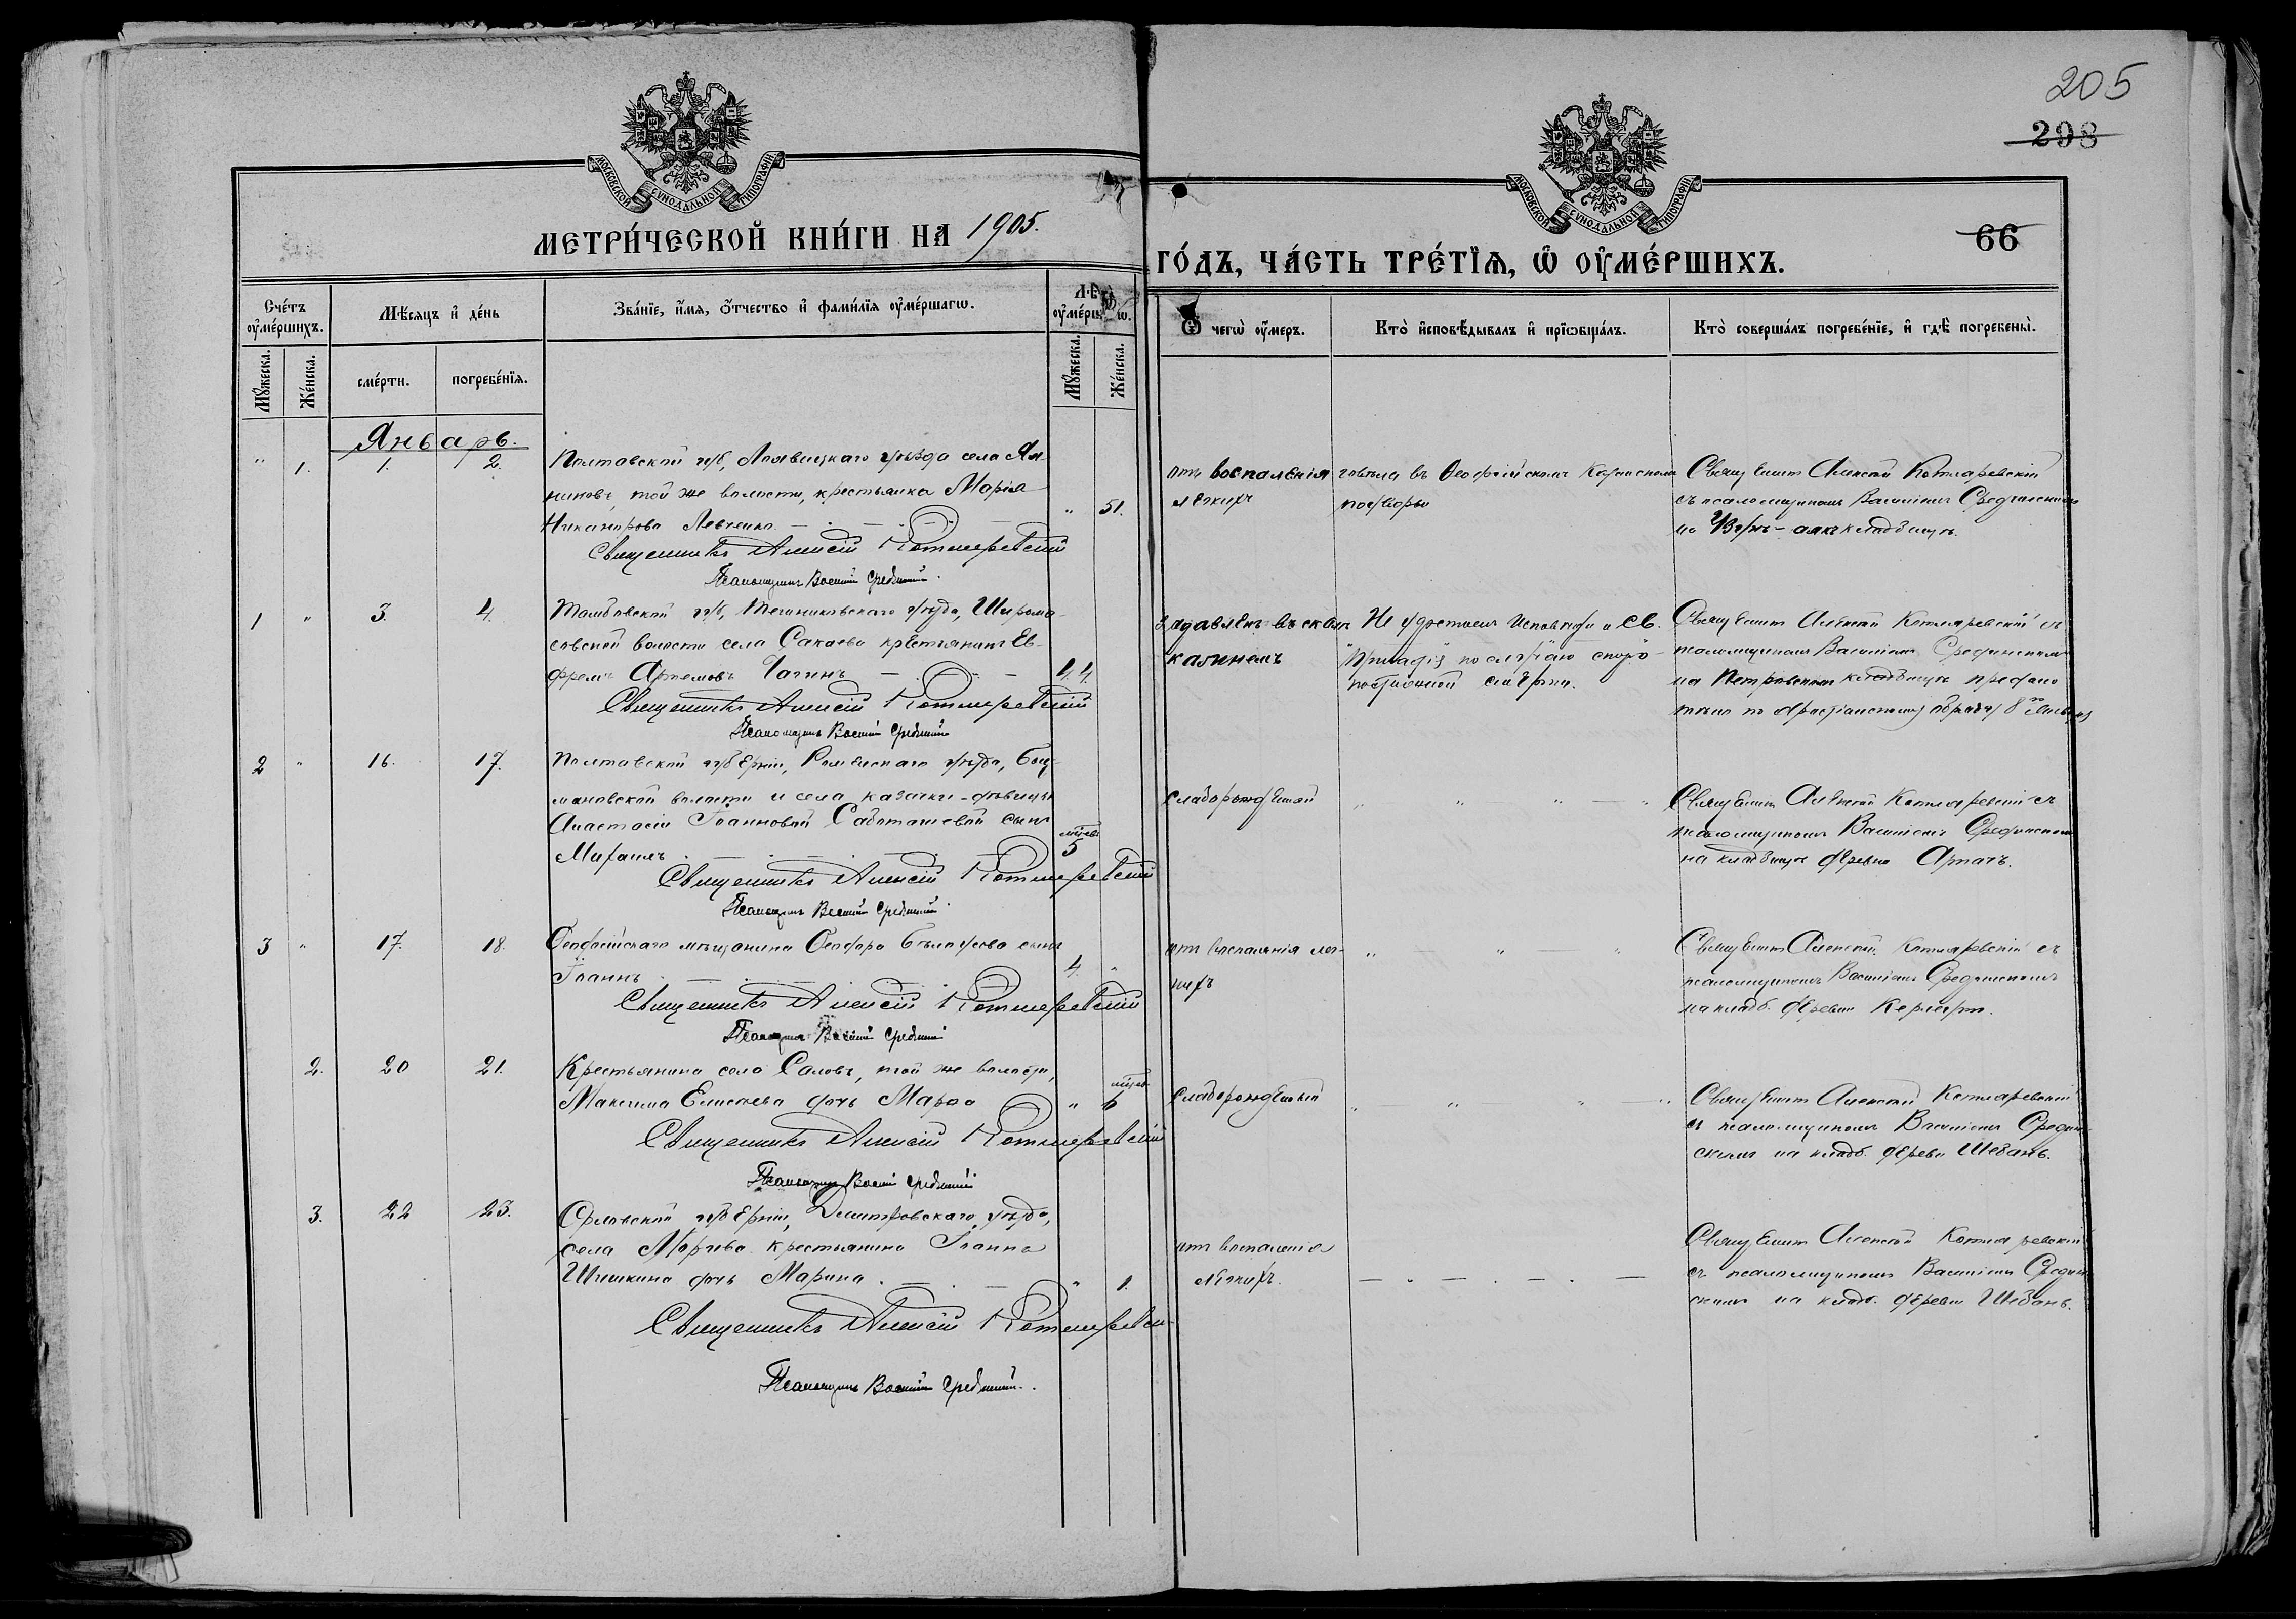 205
298
66
МОСКОВСКОЙ СУНОДАЛЬНОЙ ТИПОГРАФІИ
МОСКОВСКОЙ СУНОДАЛЬНОЙ ТИПОГРАФІИ
МЕТРИ́ЧЕСКОЙ КНИ́ГИ НА 1905.
ГО́ДЪ, ЧА́СТЬ ТРЕ́ТІѦ, Ѡ ОУМЕ́РШИХЪ.
Сче́тъ оуме́ршихъ.
Мꙋ́жеска.
Же́нска.
Мѣ́сяцъ и де́нь
сме́рти.
погребе́нїя.
Зва́нїе, и́мя, о́тчество и фами́лїя оуме́ршагѡ.
Мꙋ́жеска.
Же́нска.
Ѿ чегѡ̀ оу́меръ.
Кто̀ исповѣ́дывалъ и прїѡбща́лъ.
Кто̀ соверша́лъ погребе́нїе, и гдѣ̀ погребены̀.
Январь.
" 1. 1. 2. Полтавской губ, Лохвицкаго уѣзда села
той же волости, крестьянка Марія
Никанорова Левченко " 51.
Священникъ Алексій Котляревскій
Псаломщикъ Василій Срединскій.
отъ воспаленія
легкихъ
говѣла въ Ѳеодосійскомъ
Священ Алексій Котляревскій
съ псаломщикомъ Василіемъ Срединскимъ
на кладбищѣ.
1 " 3. 4. Тамбовской губ, Темниковскаго уѣзда,
волости села Сакаево крестьянинъ Ев-
фремъ Артемовъ Чагинъ 44.
Священникъ Алексій Котляревскій
Псаломщикъ Василій Срединскій
задавленъ въ скалѣ
камнемъ
Не удостоенъ Исповѣди и Св.
Причастія по случаю скоро-
постижной смерти.
Священ Алексій Котляревскій съ
псаломщикомъ Василіемъ Срединскимъ
на Петровскомъ кладбищѣ предано
тѣло по христіанскому обряду
2 " 16. 17. Полтавской губерніи, Роменскаго уѣзда,
волости и села казачки-дѣвицы
Анастасіи Іоанновой сынъ
Михаилъ мѣсяц. 5
Священникъ Алексій Котляревскій
Псаломщикъ Василій Срединскій
слаборожденный
Священ Алексій Котляревскій съ
псаломщикомъ Василіемъ Срединскимъ
на кладбищѣ деревни
3 " 17. 18. Ѳеодосійскаго мѣщанина Ѳеодора Бѣлоусова сынъ
Іоаннъ 4. "
Священникъ Алексій Котляревскій
Псаломщикъ Василій Срединскій
отъ воспаленія лег-
кихъ
Священ Алексій Котляревскій съ
псаломщикомъ Василіемъ Срединскимъ
на кладб. деревни
2. 20 21. Крестьянина села той же волости,
Максима Елисеева дочь " 6
Священникъ Алексій Котляревскій
Псаломщикъ Василій Срединскій
слаборожденный
Священ Алексій Котляревскій
съ псаломщикомъ Василіемъ Средин-
скимъ на кладб. деревн Шебанъ.
3. 22 23. Орловской губерніи, Дмитровскаго уѣзда,
села крестьянина Іоанна
Шишкина дочь Марина. " 1.
Священникъ Алексій Котляревскій
Псаломщикъ Василій Срединскій.
отъ воспаленія
легкихъ.
Священ Алексій Котляревскій
съ псаломщикомъ Василіемъ Средин-
скимъ на кладб. деревн Шебанъ.